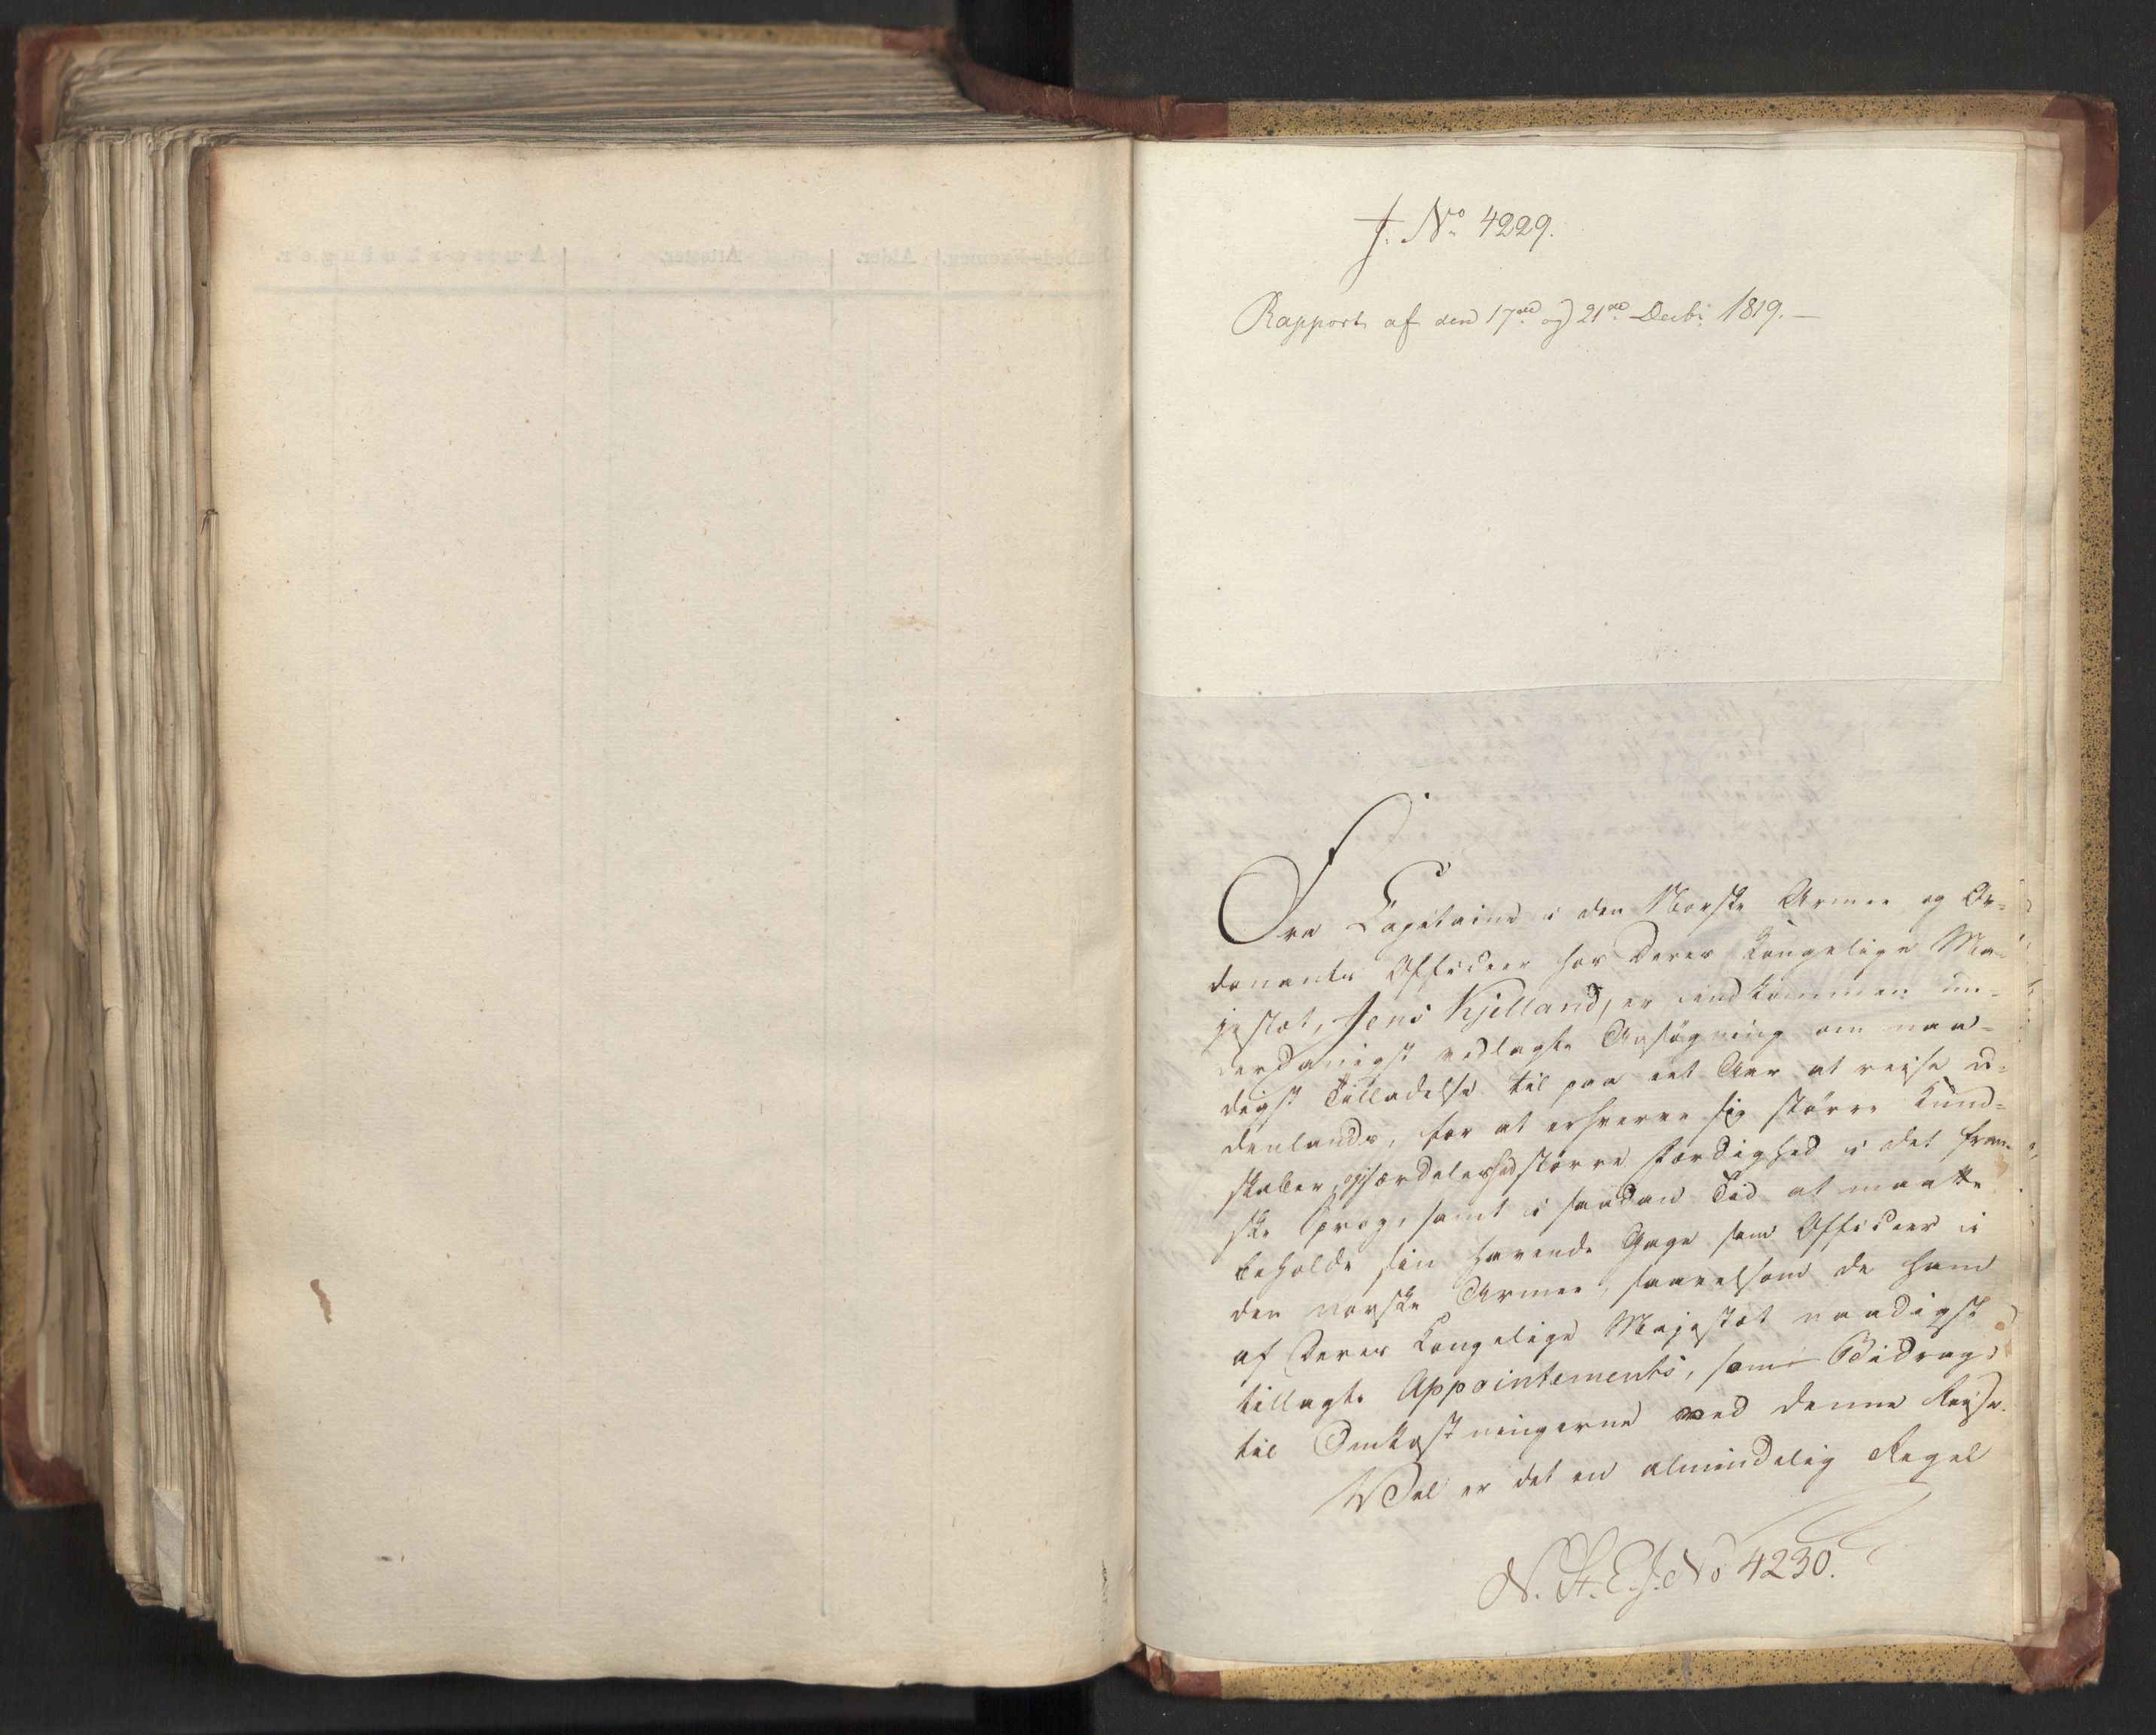 J. No 4229.
Rapport af den 17de og 21de Decbr 1819.—
Fra Capitaine i den Norske Armee og Or=
donants Officeer hos Deres Kongelige Ma=
jestæt, Jens Kjelland, er indkommen un=
derdanigst vedlagte Ansøgning om naa=
digst Tilladelse til paa eet Aar at reise u=
denlands, for at erhverve sig større Kund=
skaber, isærdeleshed større Færdighed i det fran=
ske Sprog, samt i saadan Tid at maatte
beholde sin havende Gage som Officeer i
den norske Armee, saavelsom de ham
af Deres Kongelige Majestæt naadigst
tillagte Appointements, som Bidrag
til Omkostningerne ved denne Reise.
Vel er det en almindelig Regel
N. St. E. J. No 4230.